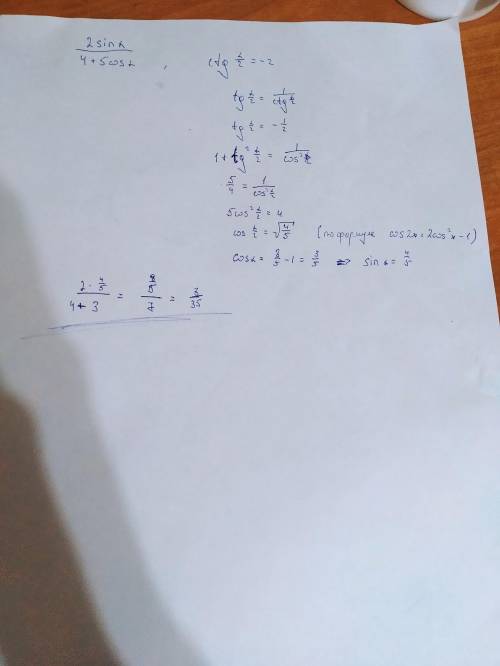 2sinα / 4+5cosα , ctg α/2 = -2
tg α/2 = 1/ctg α/2
tg α/2 = -1/2
1+tg² α/2 = 1/cos² α/2
5/4 = 1/cos² α/2
5cos² α/2 = 4
cos α/2 = √4/5 (по формуле cos2x=2cos²x-1)
cosα = 8/5 - 1 = 3/5 => sinα = 4/5
2·4/5 / 4+3 = 8/5 / 7 = 8/35